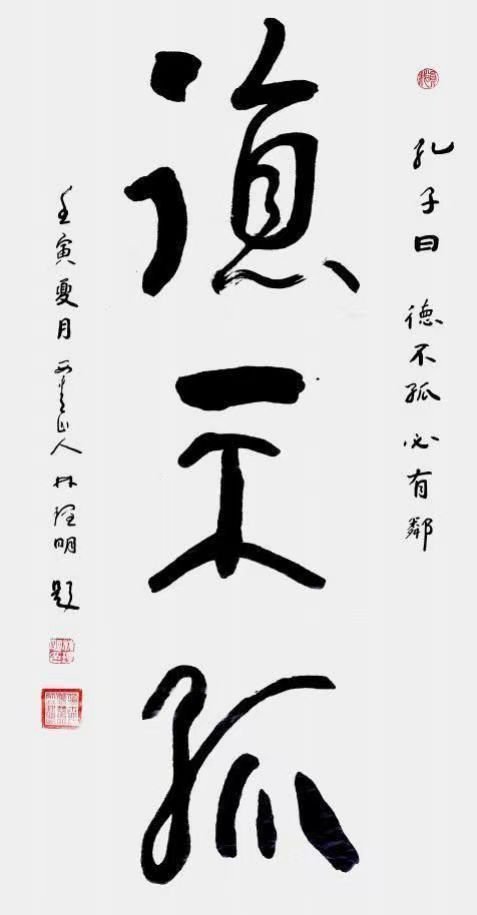 孔子曰 德不孤 必有鄰
德不孤
壬寅夏月 山人 林 明 題